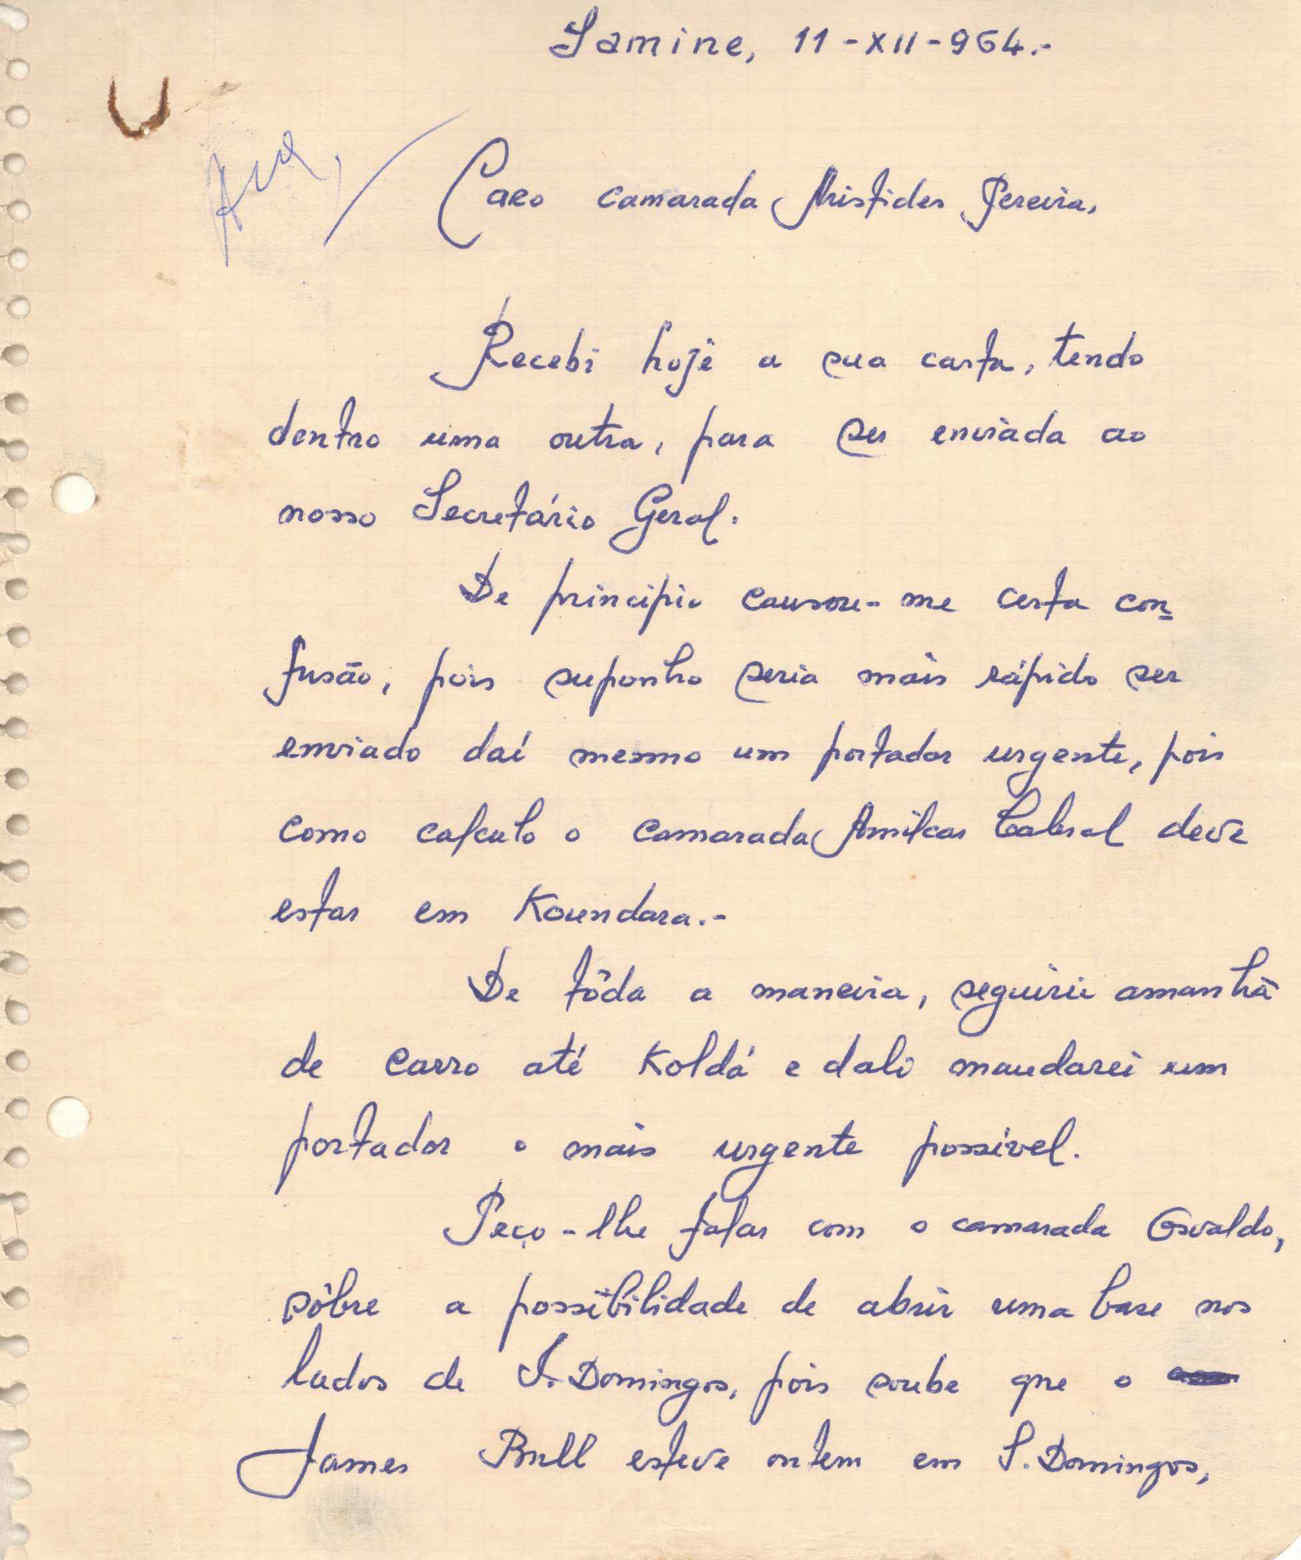 Samine, 11-XII-964.-
Caro camarada Aristides Pereira,
Recebi hoje a sua carta, tendo
dentro uma outra, para ser enviada ao
nosso Secretário Geral.
De principio causou-me certa con
fusão, pois suponho seria mais rápido ser
enviado daí mesmo um portador urgente, pois
como calculo o camarada Amilcar Cabral deve
estar em Koundara.-
De tôda a maneira, seguirei amanhã
de carro até Koldá e dali mandarei um
portador o mais urgente possível.
Peço-lhe falar com o camarada Osvaldo,
sôbre a possibilidade de abrir uma base nos
lados de S. Domingos, pois soube que o
James Bull esteve ontem em S. Domingos,